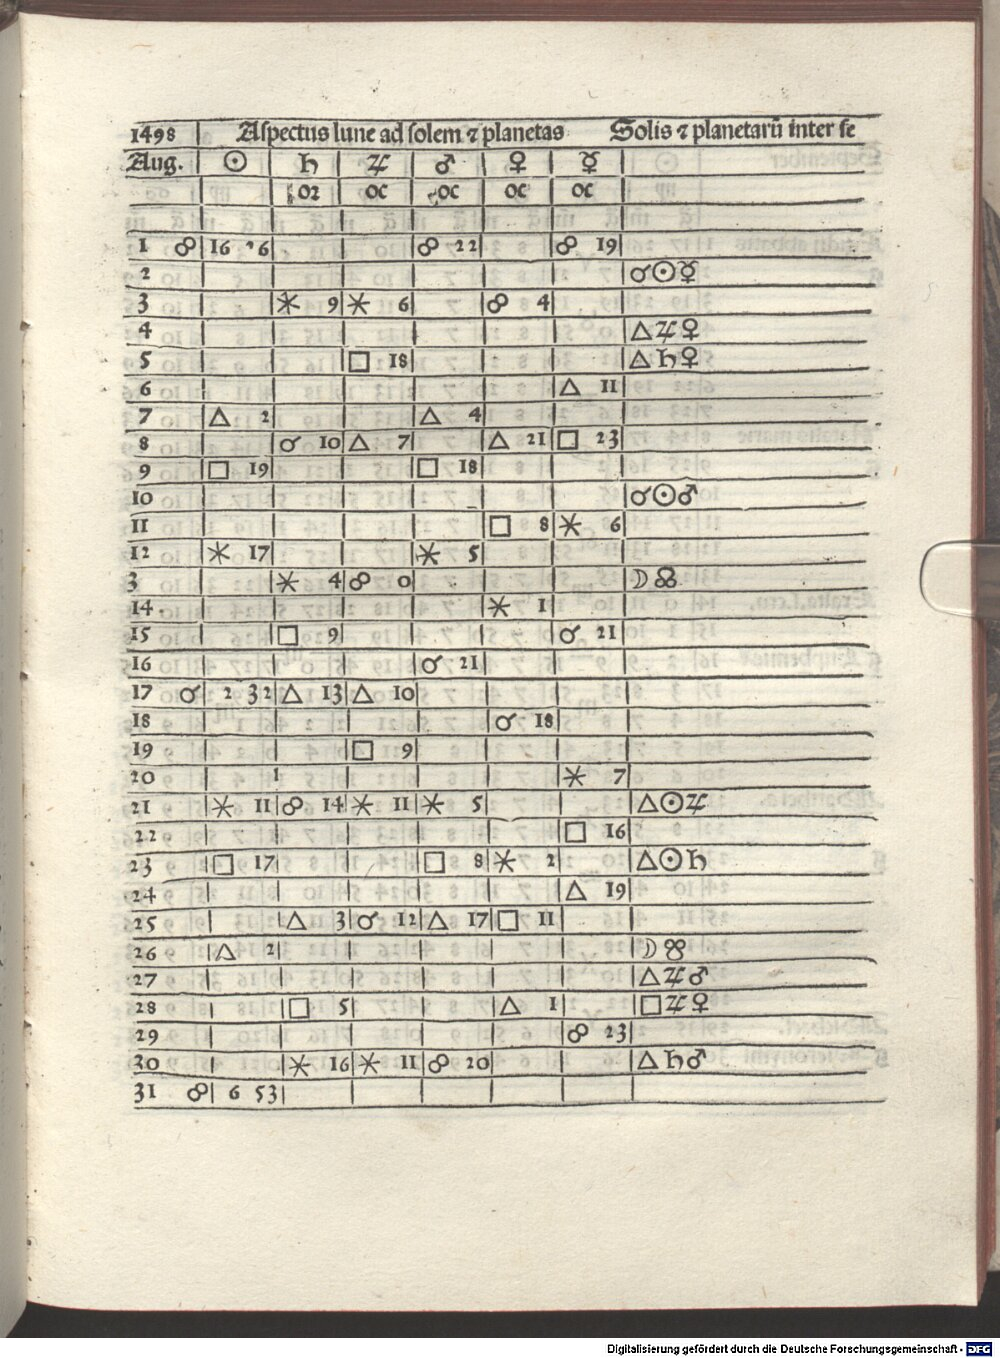 1498 Aspectus lune ad solem ⁊ planetas Solis ⁊ planetarū inter se
Aug. ☉ ♄ ♃ ♂ ♀ ☿
oc oc oc oc
1 ☍ 16 6 ☍ 22 ☍ 19
2 ☌☉☿
3 ⚹ 9 ⚹ 6 ☍ 4
4 △♃♀
5 □ 18 △♄♀
6 △ 11
7 △ 2 △ 4
8 ☌ 10 △ 7 △ 21 □ 23
9 □ 19 □ 18
10 ☌☉♂
11 □ 8 ⚹ 6
12 ⚹ 17 ⚹ 5
3 ⚹ 4 ☍ 0 ☽☊
14 ⚹ 1
15 □ 9 ☌ 21
16 ☌ 21
17 ☌ 2 32 △ 13 △ 10
18 ☌ 18
19 □ 9
20 ⚹ 7
21 ⚹ 11 ☍ 14 ⚹ 11 ⚹ 5 △☉♃
22 □ 16
23 □ 17 □ 8 ⚹ 2 △☉♄
24 △ 19
25 △ 3 ☌ 12 △ 17 □ 11
26 △ 2 ☽☋
27 △♃♂
28 □ 5 △ 1 □♃♀
29 ☍ 23
30 ⚹ 16 ⚹ 11 ☍ 20 △♄♂
31 ☍ 6 53
Digitalisierung gefördert durch die Deutsche Forschungsgemeinschaft - DFG